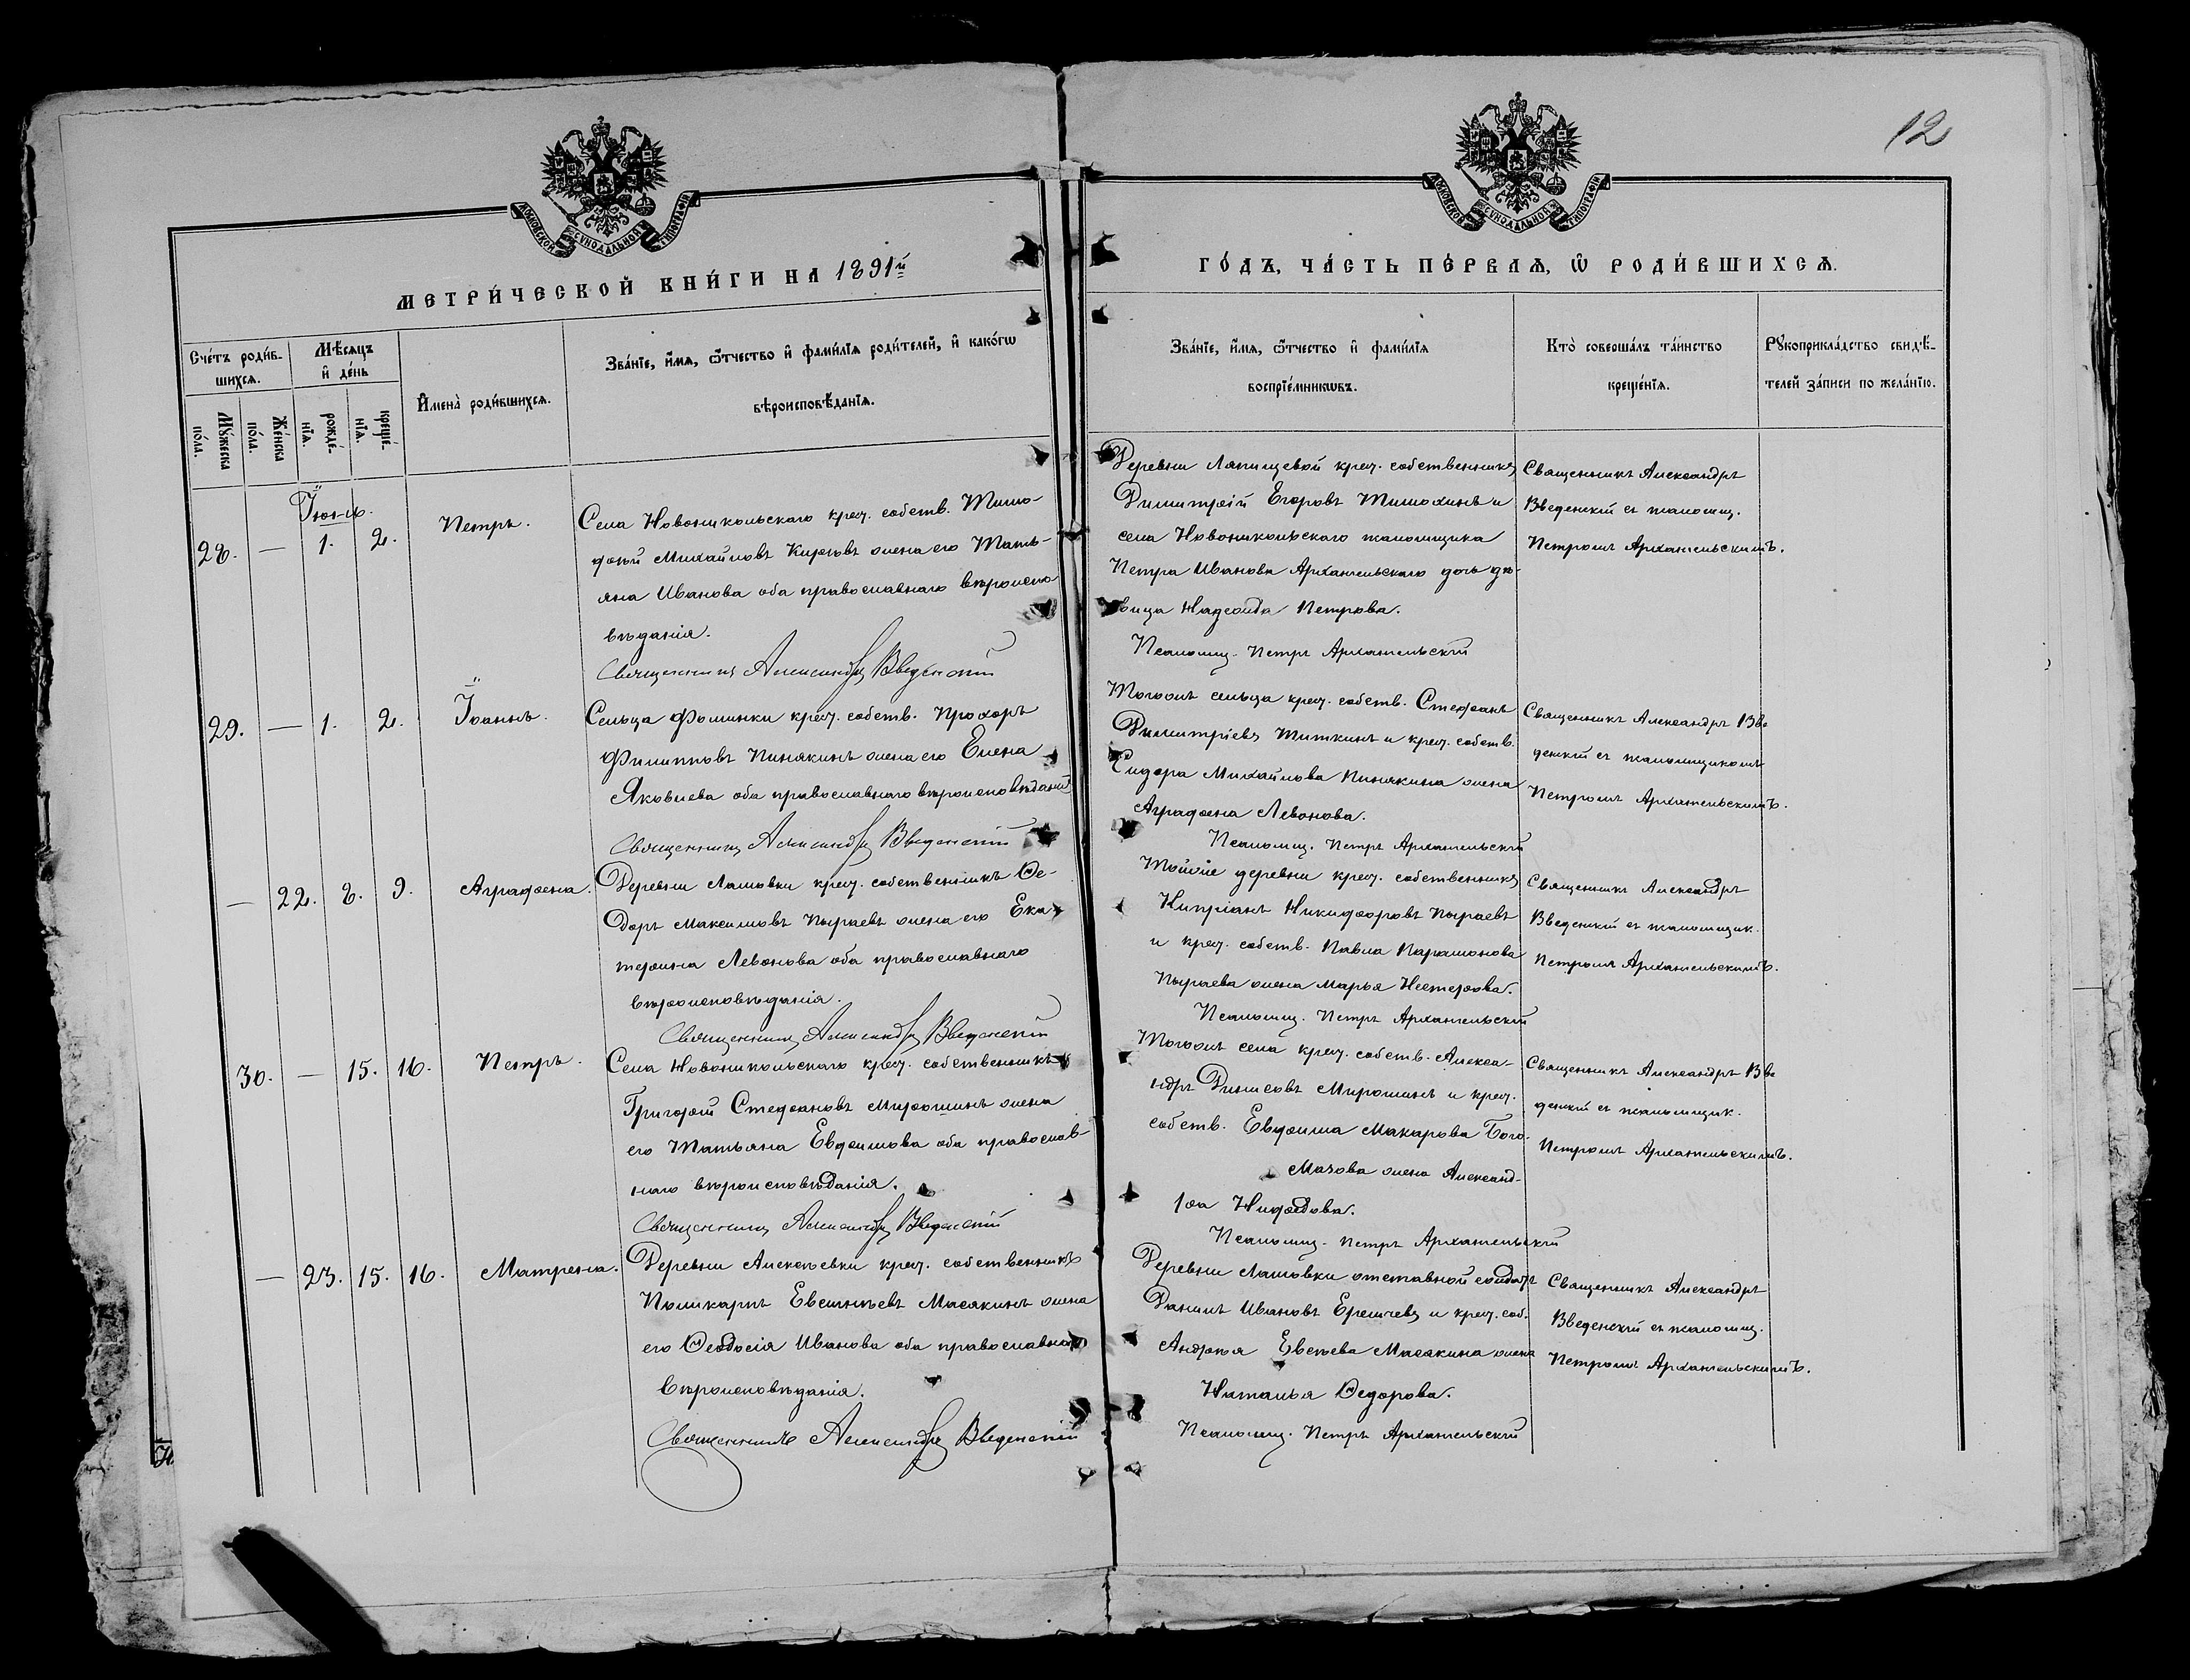 12
МОСКОВСКОЙ СѴНОДАЛЬНОЙ ТИПОГРАФІИ
МОСКОВСКОЙ СѴНОДАЛЬНОЙ ТИПОГРАФІИ
МЕТРИ́ЧЕСКОЙ КНИ́ГИ НА 1891й
ГО́ДЪ, ЧА́СТЬ ПЕ́РВАѦ, Ѡ РОДИ́ВШИХСѦ.
Сче́тъ роди́в-
шихсѧ.
Мꙋ́жеска
по́ла.
Же́нска
по́ла.
Мѣ́сяцъ
и҆ де́нь
рожде́-
нїѧ.
креще́-
нїѧ.
И҆мена̀ роди́вшихсѧ.
Зва́нїе, и҆́мѧ, ѻ҆́тчество и҆ фами́лїѧ роди́телей, и҆ како́гѡ
вѣроисповѣ́данїѧ.
Зва́нїе, и҆́мѧ, ѻ҆́тчество и҆ фами́лїѧ
воспрїе́мникѡвъ.
Кто̀ соверша́лъ та́инство
креще́нїѧ.
Рꙋкоприкла́дство свидѣ́-
телей за́писи по жела́нїю.
Іюнь.
28. — 1. 2. Петръ.
Села Новоникольскаго крест. собств. Тимо-
фей Михайловъ жена его Тать-
яна Иванова оба православнаго вѣроиспо-
вѣданія.
Священникъ Александръ Введенскій
Деревни Ляпищевой крест. собственникъ
Димитрій Егоровъ Тимохинъ и
села Новоникольскаго псаломщика
Петра Иванова Архангельскаго дочь дѣ-
вица Надежда Петрова.
Псаломщ. Петръ Архангельскій
Священникъ Александръ
Введенскій съ псаломщ.
Петромъ Архангельскимъ.
29. — 1. 2. Іоаннъ.
Сельца Фоминки крест. собств. Прохоръ
Филипповъ Пинякинъ жена его Елена
Яковлева оба православнаго вѣроисповѣданія
Священникъ Александръ Введенскій
Тогоже сельца крест. собств. Стефанъ
Димитріевъ Титкинъ и крест. собств.
Сидора Михайлова Пинякина жена
Аграфена Левонова.
Псаломщ. Петръ Архангельскій
Священникъ Александръ Вве
денскій съ псаломщикомъ
Петромъ Архангельскимъ.
— 22. 8. 9. Аграфена.
Деревни Лашовки крест. собственникъ Ѳе-
доръ Максимовъ Пыраевъ жена его Ека-
терина Левонова оба православнаго
вѣроисповѣданія.
Священникъ Александръ Введенскій
Тойже деревни крест. собственникъ
Кипріанъ Никифоровъ Пыраевъ
и крест. собств. Павла Парамонова
Пыраева жена Марья Нестерова.
Псаломщ. Петръ Архангельскій
Священникъ Александръ
Введенскій съ псаломщик.
Петромъ Архангельскимъ.
30. — 15. 16. Петръ.
Села Новоникольскаго крест. собственникъ
Григорій Стефановъ Мирошинъ жена
его Татьяна Евфимова оба православ-
наго вѣроисповѣданія.
Священникъ Александръ Введенскій
Тогоже села крест. собств. Алекса-
ндръ Мирошинъ и крест.
собств. Евфима Макарова Бого-
мазова жена Александ-
ра
Псаломщ. Петръ Архангельскій
Священникъ Александръ Вве
денскій съ псаломщик.
Петромъ Архангельскимъ.
— 23. 15. 16. Матрена.
Деревни Алексѣевки крест. собственникъ
Поликарпъ Евсигнѣевъ Масякинъ жена
его Ѳеодосія Иванова оба православнаго
вѣроисповѣданія.
Священникъ Александръ Введенскій
Деревни Лашовки отставной солдатъ
Данилъ Ивановъ и крест. соб.
Андрея Масякина жена
Наталья Ѳедорова.
Псаломщ. Петръ Архангельскій
Священникъ Александръ
Введенскій съ псаломщ.
Петромъ Архангельскимъ.